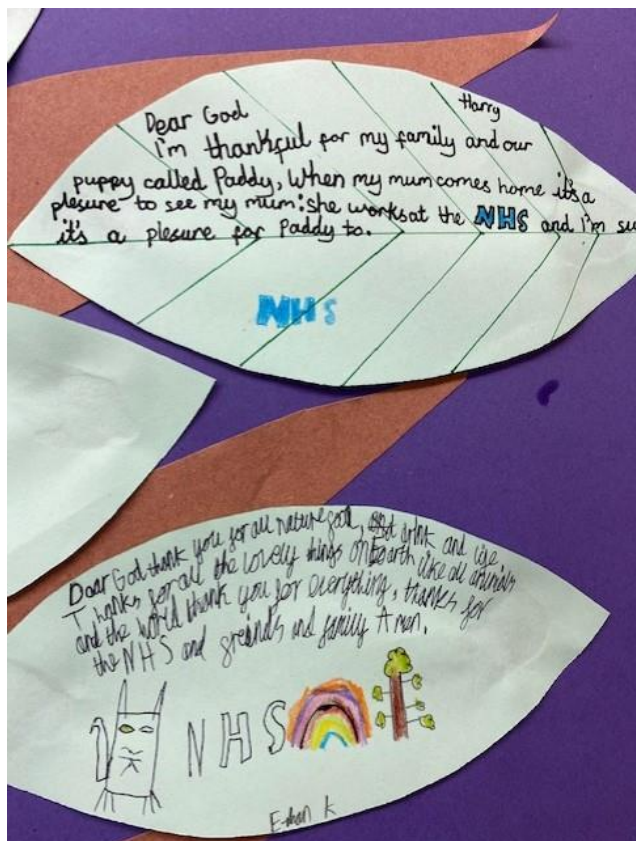 Harry
Dear God
I'm thankful for my family and our
puppy called Paddy, When my mum comes home it's a
plesure to see my mum: she works at the NHS and I'm su
it's a plesure for Paddy to.
NHS
Dear God thank you for all nature food, and drink and life.
Thanks for all the lovely things on Earth like all animals
and the world thank you for everything, thanks for
the NHS and freinds and family Amen.
NHS
Ethan K